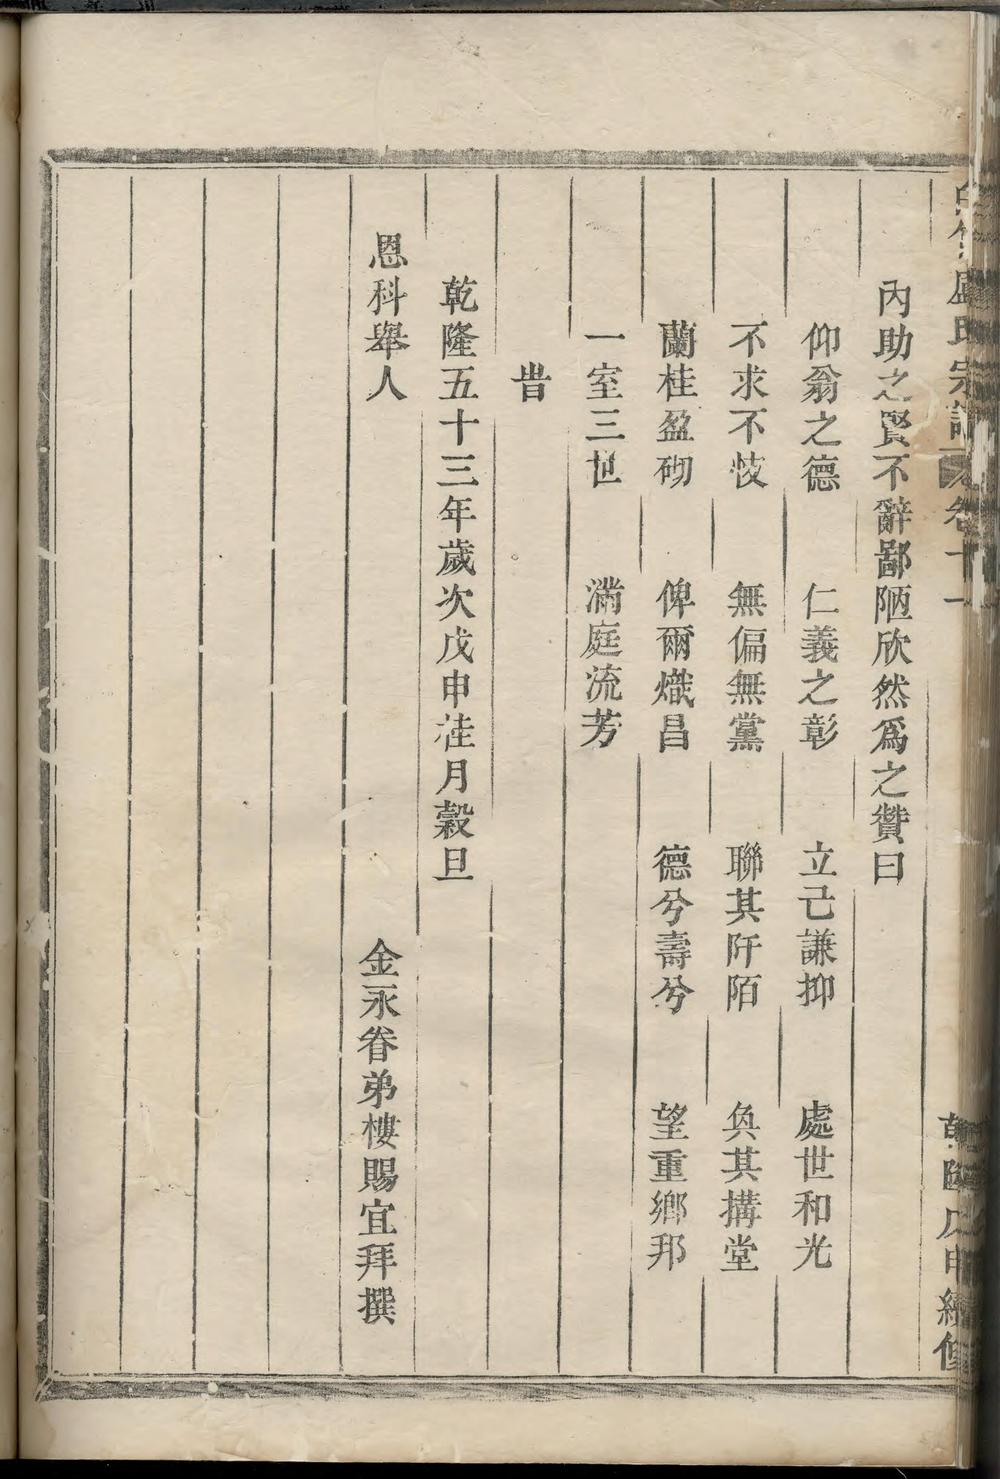 盧氏宗譜 卷十一
乾隆戊申續修
內助之賢不辭鄙陋欣然爲之贊曰
仰翁之德 仁義之彰 立己謙抑 處世和光
不求不忮 無偏無黨 聯其阡陌 奐其搆堂
蘭桂盈砌 俾爾熾昌 德兮壽兮 望重鄉邦
一室三世 滿庭流芳
旹
乾隆五十三年歲次戊申桂月穀旦
恩科舉人 金永眷弟樓賜宜拜撰